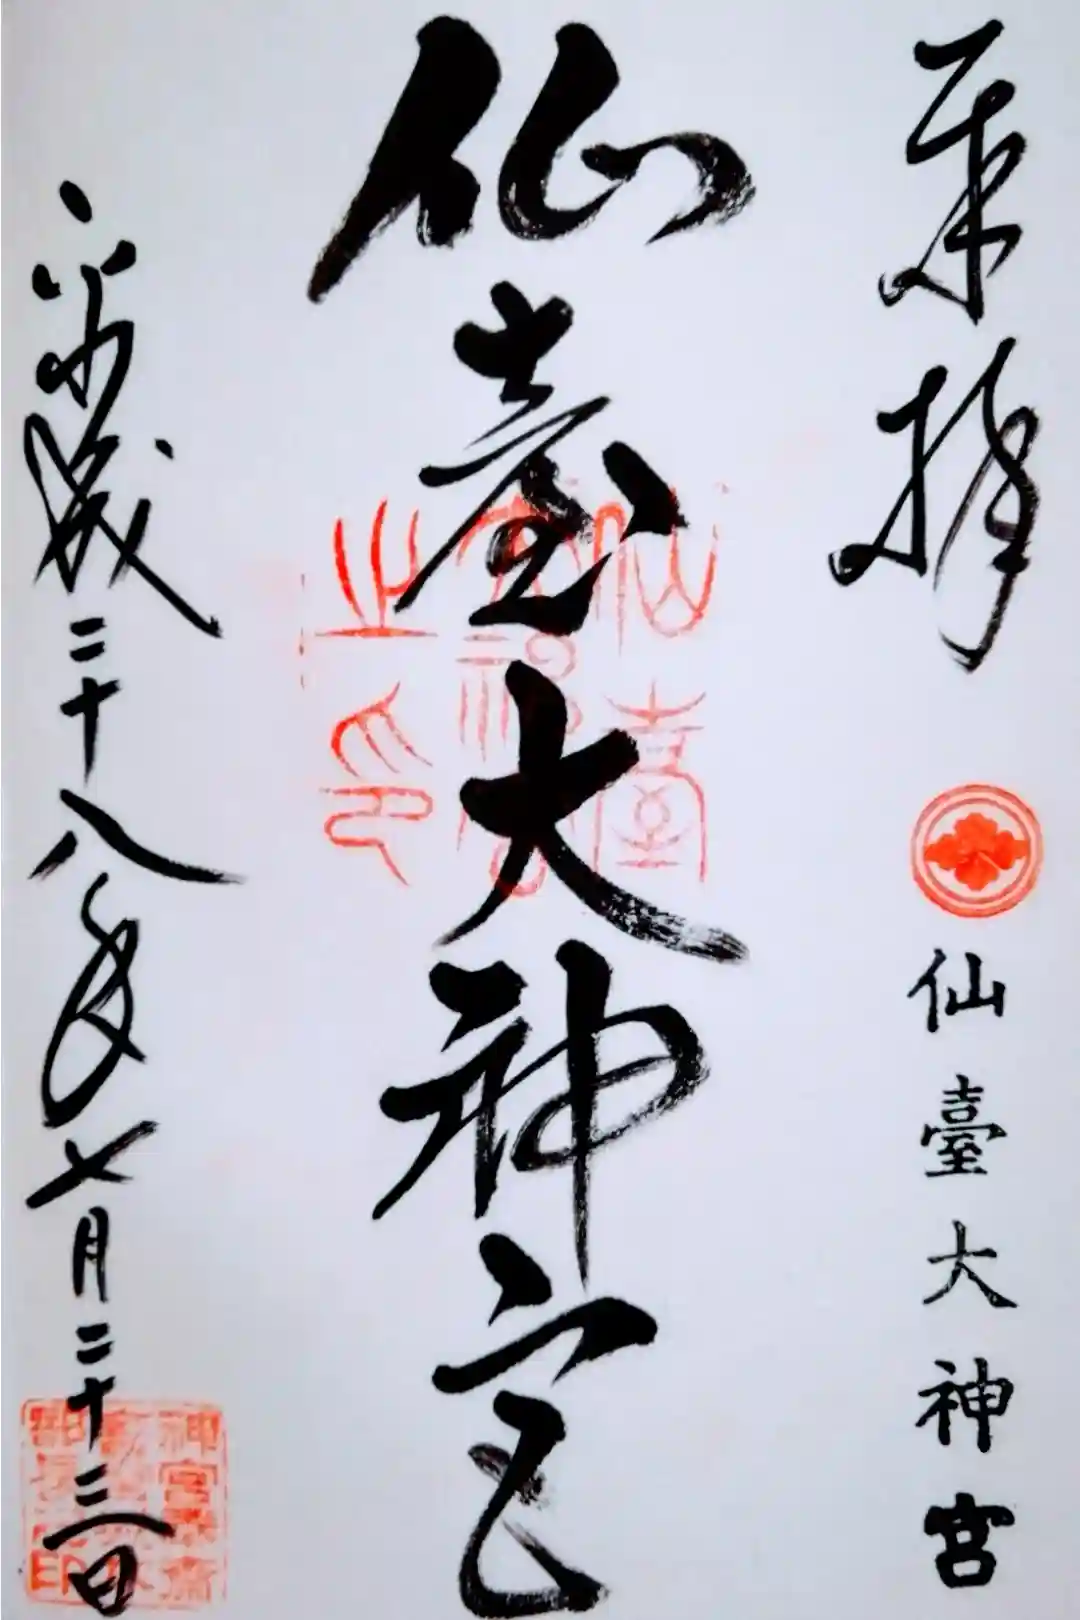 奉拝
仙臺大神宮
仙臺大神宮
仙臺
大神宮
之印
平成二十八年七月二十三日
神宮奉齋